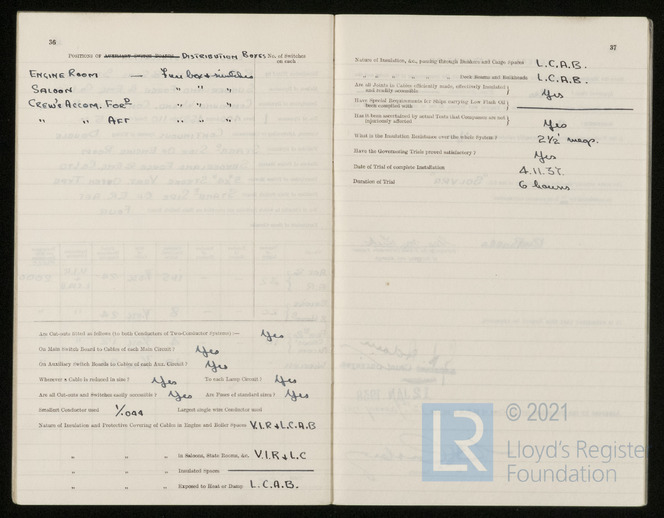 36
POSITIONS OF AUXILIARY SWITCH BOARDS DISTRIBUTION BOXES No. of Switches on each
ENGINE ROOM — Fuse box & switches
SALOON " " "
CREW'S ACCOM. FORD " " "
" " AFT " " "
Are Cut-outs fitted as follows (to both Conductors of Two-Conductor Systems) :— Yes
On Main Switch Board to Cables of each Main Circuit ? Yes
On Auxiliary Switch Boards to Cables of each Aux. Circuit ? Yes
Wherever a Cable is reduced in size ? Yes To each Lamp Circuit ? Yes
Are all Cut-outs and Switches easily accessible ? Yes Are Fuses of standard sizes ? Yes
Smallest Conductor used 1/.044 Largest single wire Conductor used
Nature of Insulation and Protective Covering of Cables in Engine and Boiler Spaces V.I.R & L.C.A.B
" " " In Saloons, State Rooms, &c. V.I.R & L.C
" " " Insulated Spaces
" " " Exposed to Heat or Damp L.C.A.B.
37
Nature of Insulation, &c., passing through Bunkers and Cargo Spaces L.C.A.B.
" " " Deck Beams and Bulkheads L.C.A.B.
Are all Joints in Cables efficiently made, effectively Insulated and readily accessible Yes
Have Special Requirements for Ships carrying Low Flash Oil been complied with
Has it been ascertained by actual Tests that Compasses are not injuriously affected Yes
What is the Insulation Resistance over the whole System ? 2½ meg.
Have the Governing Trials proved satisfactory ? Yes
Date of Trial of complete Installation 4.11.37.
Duration of Trial 6 hours
LR © 2021
Lloyd's Register
Foundation